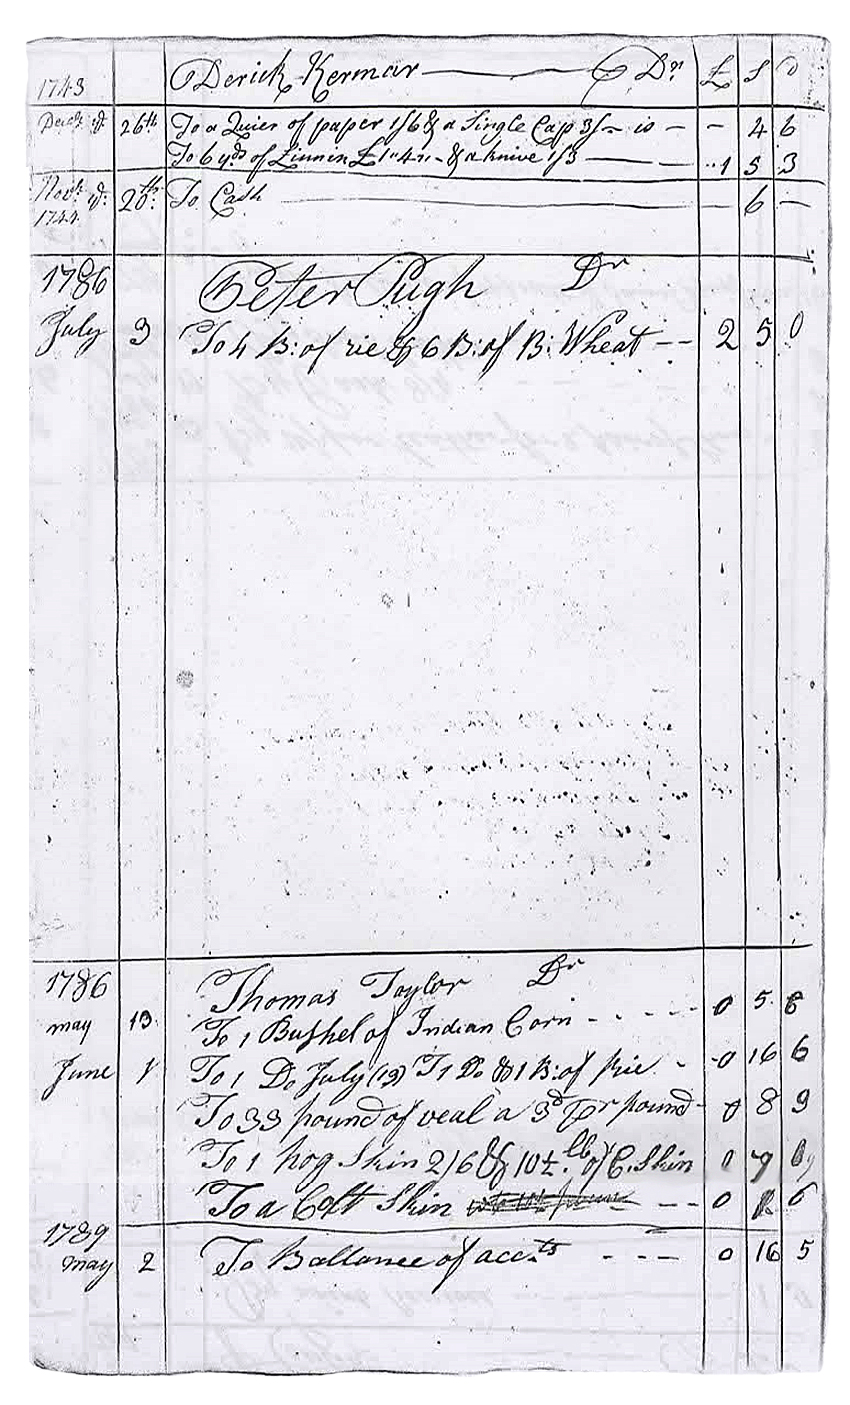 1743 Derick Kermar Dr £ S D
Decbr ye 26th To a Quier of paper 1/6 & a Single Cap 3/ - is - - 4 6
To 6 yds of Linnen £1"4"- & a knive 1/3 "1 5 3
Novbr ye 20th: To Cash - 6 -
1744
1786 Peter Pugh Dr
July 3 To 4 B: of rie & 6 B: of B: Wheat -- 2 5 0
1786 Thomas Taylor Dr
may 13 To 1 Bushel of Indian Corn - - - - - 0 5 6
June 1 To 1 Do July (13) T1 Do & 1 B: of rie - 0 16 6
To 33 pound of veal a 3d Pr pound - 0 8 3
To 1 hog Skin 2/6 & 10½ lb of C. Skin 0 7
To a Colt Skin - - - 0 6
1789
may 2 To Ballance of accts - - - - 0 16 5